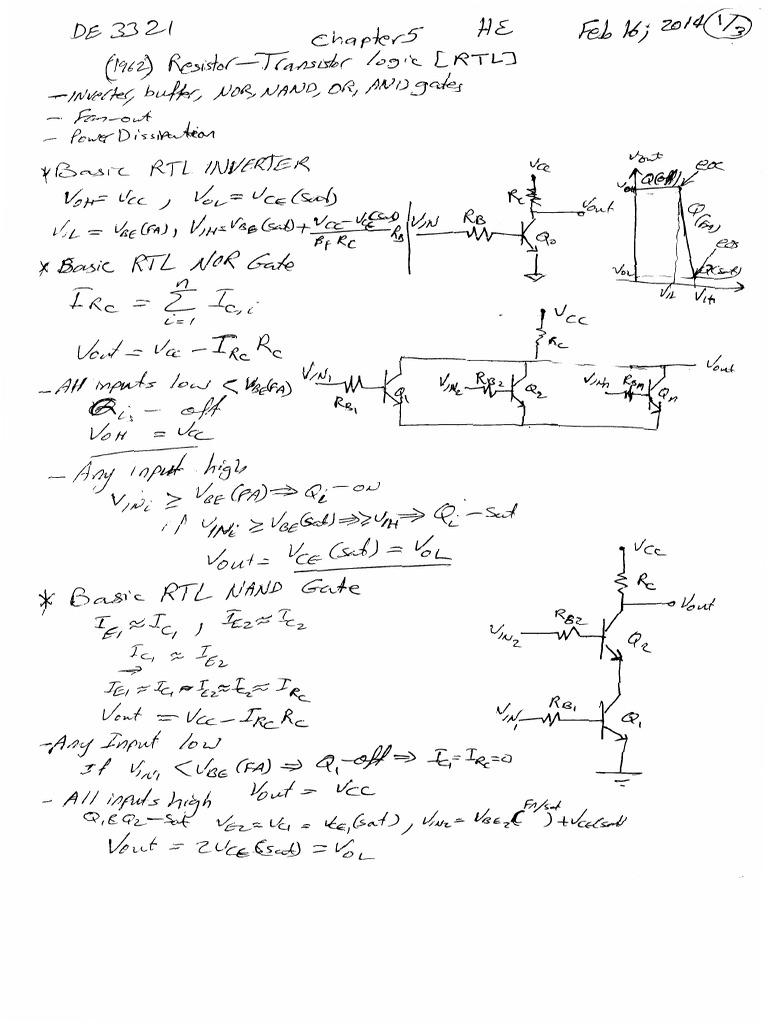 DE 3321
HE
Feb 16, 2014 1/3
Chapter 5
(1962) Resistor-Transistor Logic [RTL]
- Inverter, buffer, NOR, NAND, OR, AND gates
- Fan-out
- Power Dissipation
* Basic RTL INVERTER
VOH = VCC , VOL = VCE (sat)
VIL = VBE(FA), VIH = VBE (sat) + VCC - VCE(sat) / βF RC RB
VIN RB RC VCC Vout Q0
Vout VOH Q(off) EOC Q(FA) EOS VOL Q(sat) VIL VIH
* Basic RTL NOR Gate
IRC = Σ i=1 n IC,i
Vout = VCC - IRC RC
VCC RC Vout
VIN1 RB1 Q1 VIN2 RB2 Q2 VINn RBn Qn
- All inputs low < VBE(FA)
Qi, - off
VOH = VCC
- Any input high
VINi ≥ VBE (FA) ⇒ Qi - on
if VINi ≥ VBE(sat) ⇒ ≥ VIH ⇒ Qi - sat
Vout = VCE (sat) = VOL
* Basic RTL NAND Gate
IE1 ≈ IC1 , IE2 ≈ IC2
IC1 ≈ IE2
→
IE1 ≈ IC1 ≈ IE2 ≈ IC2 ≈ IRC
Vout = VCC - IRC RC
VCC RC Vout
VIN2 RB2 Q2
VIN1 RB1 Q1
- Any Input low
If VIN1 < VBE (FA) ⇒ Q1 - off ⇒ IC1 = IRC = 0
Vout = VCC
- All inputs high
Q1 & Q2 - sat VE2 = VC1 = VCE1 (sat), VIN2 = VBE2 (FA/sat) + VCE(sat)
Vout = 2VCE (sat) = VOL